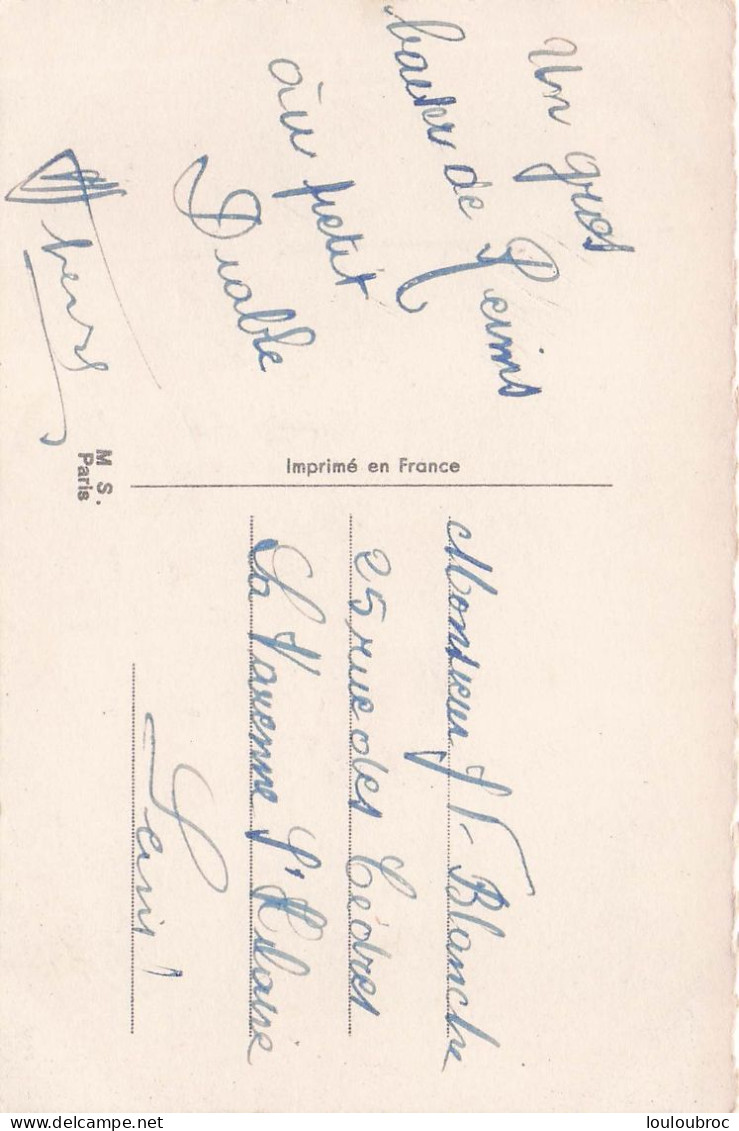 Un gros
baiser de Reims
au petit
Diable
Imprimé en France
M S.
Paris
Monsieur J P. Blanche
25 rue des Cèdres
La Varenne St Hilaire
Seine
delcampe.net
louloubroc